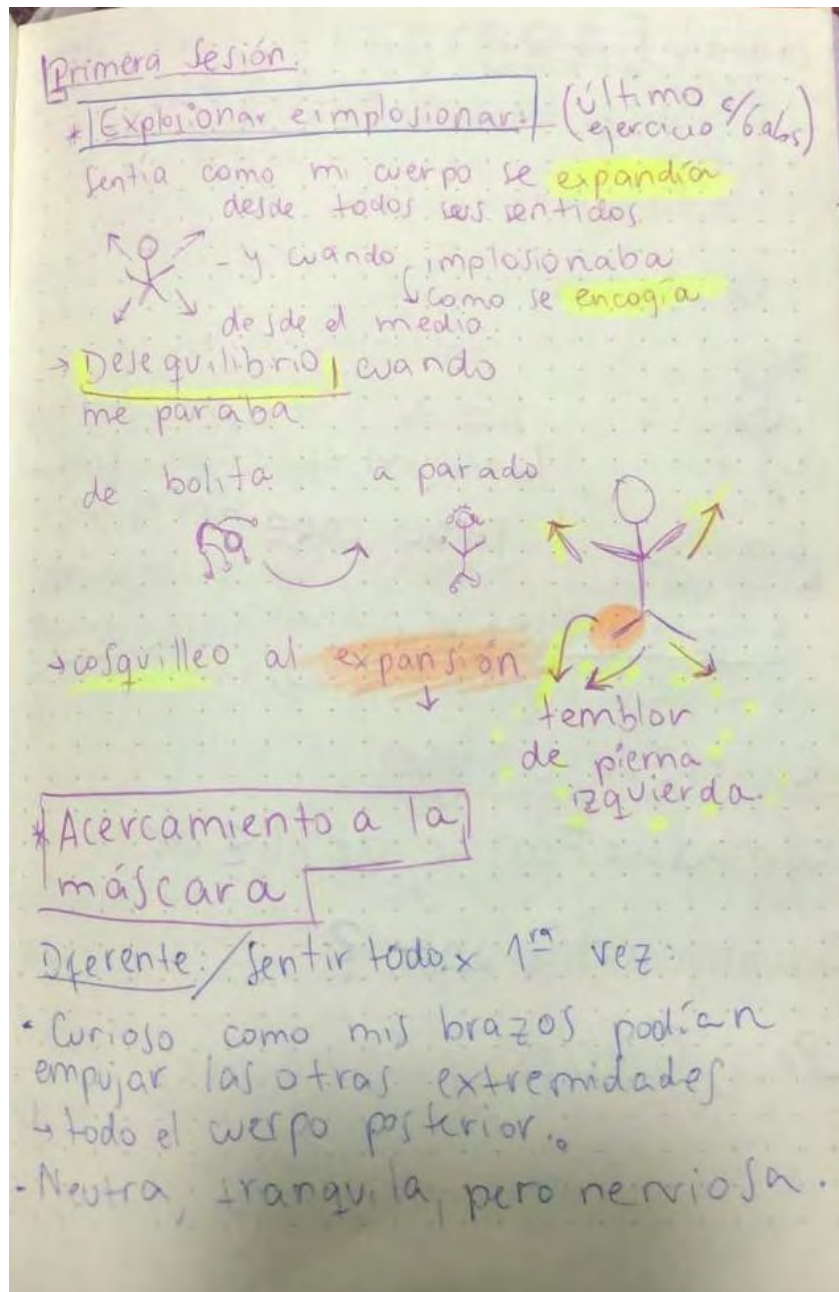 Primera Sesión.
* Explosionar e implosionar: (último
ejercicio c/6.abs)
Sentía como mi cuerpo se expandía
desde todos sus sentidos.
- y cuándo implosionaba
↳ como se encogía
desde el medio.
→ Desequilibrio, cuando
me paraba
de bolita a parado
→ cosquilleo al expansión
↓
temblor
de pierna
izquierda.
* Acercamiento a la
máscara
Diferente: / Sentir todo x 1ra vez:
• Curioso como mis brazos podían
empujar las otras extremidades
↳ todo el cuerpo posterior.
- Neutra, tranquila, pero nerviosa.